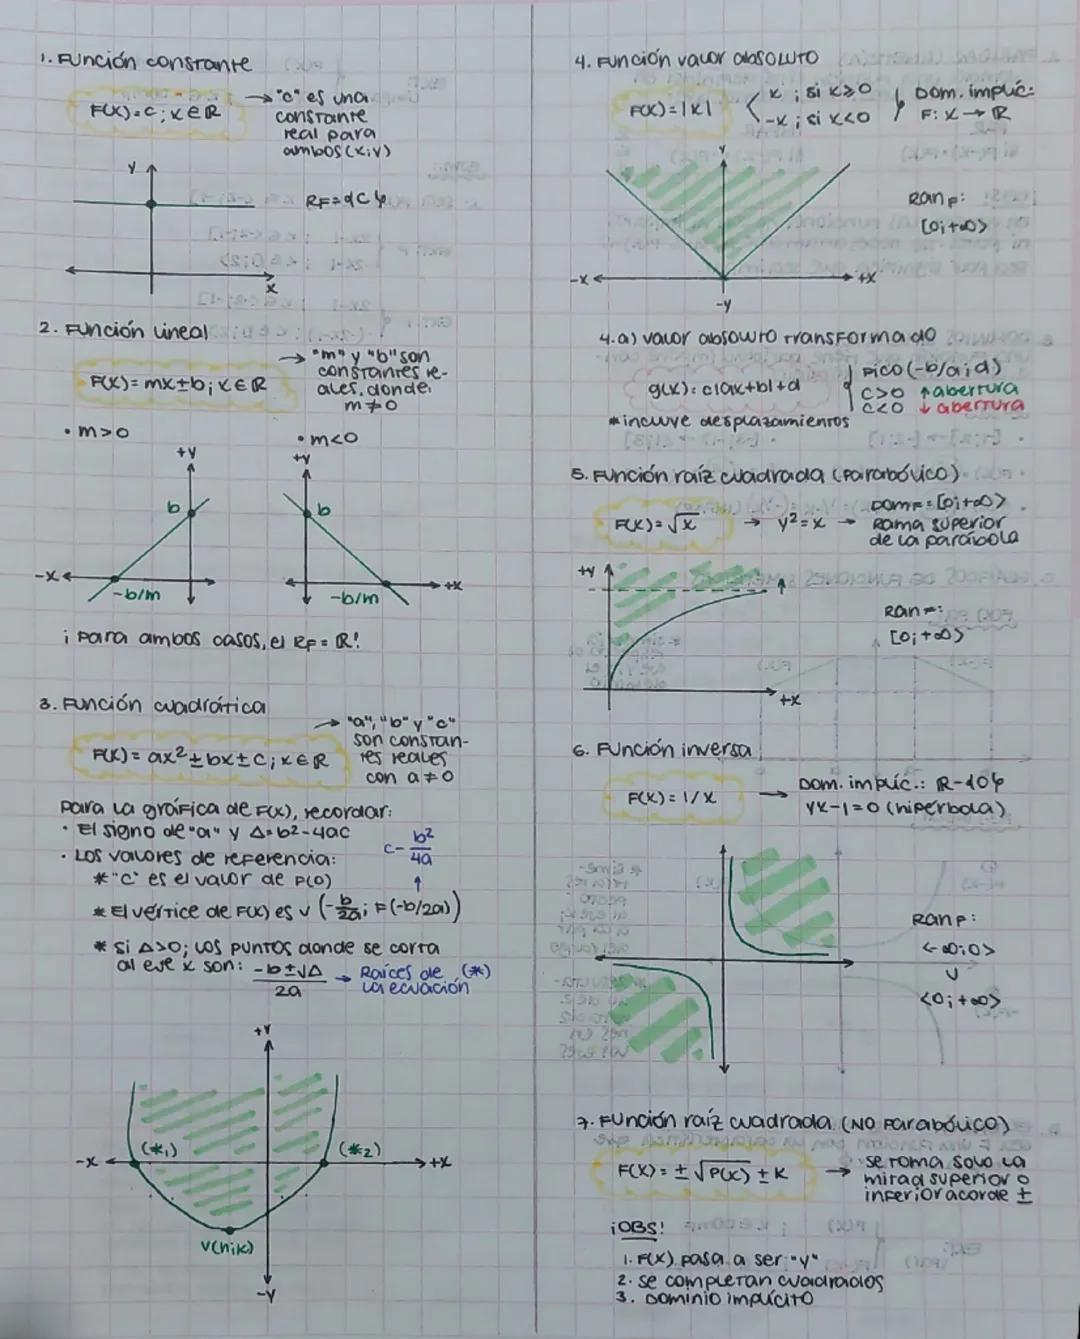 1. Función constante
F(x)=c; x∈ℝ
→ "c" es una
constante
real para
ambos (x;y)
y
RF={c}
x
2. Función lineal
F(x)=mx±b; x∈ℝ
→ "m" y "b" son
constantes re-
ales, donde:
m≠0
• m>0
+y
b
-x
-b/m
• m<0
+y
b
+x
-b/m
¡Para ambos casos, el RF=ℝ!
3. Función cuadrática
F(x)=ax²±bx±c; x∈ℝ
→ "a", "b" y "c"
son constan-
tes reales
con a≠0
Para la gráfica de F(x), recordar:
• El signo de "a" y Δ=b²-4ac
• Los valores de referencia:
* "C" es el valor de F(0)
c-b²/4a
↑
* El vértice de F(x) es v (-b/2a; F(-b/2a))
* si Δ>0; los puntos donde se corta
al eje x son: -b±√Δ/2a → Raíces de (*)
la ecuación
+y
(*₁)
(*₂)
-x
+x
v(h;k)
-y
4. Función valor absoluto
F(x)=|x|
x; si x≥0
-x; si x<0
Dom. implíc:
F: x→ℝ
y
Ran F:
[0;+∞>
-x
+x
-y
4.a) valor absoluto transformado
g(x): c|ax+b|+d
Pico (-b/a;d)
c>0 ↑abertura
c<0 ↓abertura
*incluye desplazamientos
5. Función raíz cuadrada (Parabólico)
F(x)=√x → y²=x →
Dom F=[0;+∞>
Rama superior
de la parábola
+y
Ran F:
[0;+∞>
+x
6. Función inversa
F(x)=1/x →
Dom. implíc.: ℝ-{0}
yx-1=0 (hipérbola)
Ran F:
<-∞;0>
∪
<0;+∞>
7. Función raíz cuadrada (NO Parabólico)
F(x)=±√P(x) ±K →
se toma solo la
mitad superior o
inferior acorde ±
¡OBS!
1. F(x) pasa a ser "y"
2. se completan cuadrados
3. Dominio implícito